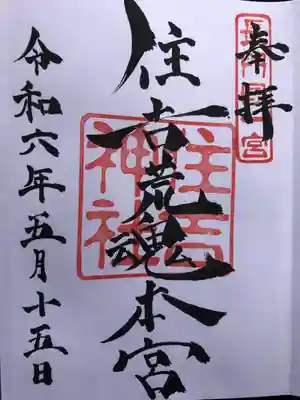 奉拝
住吉荒魂本宮
住吉神社
令和六年五月十五日